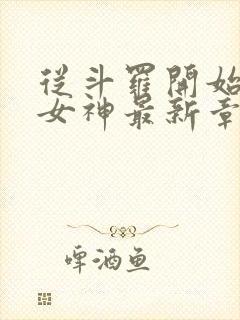 從斗羅開始
女神最新章
啤酒鱼